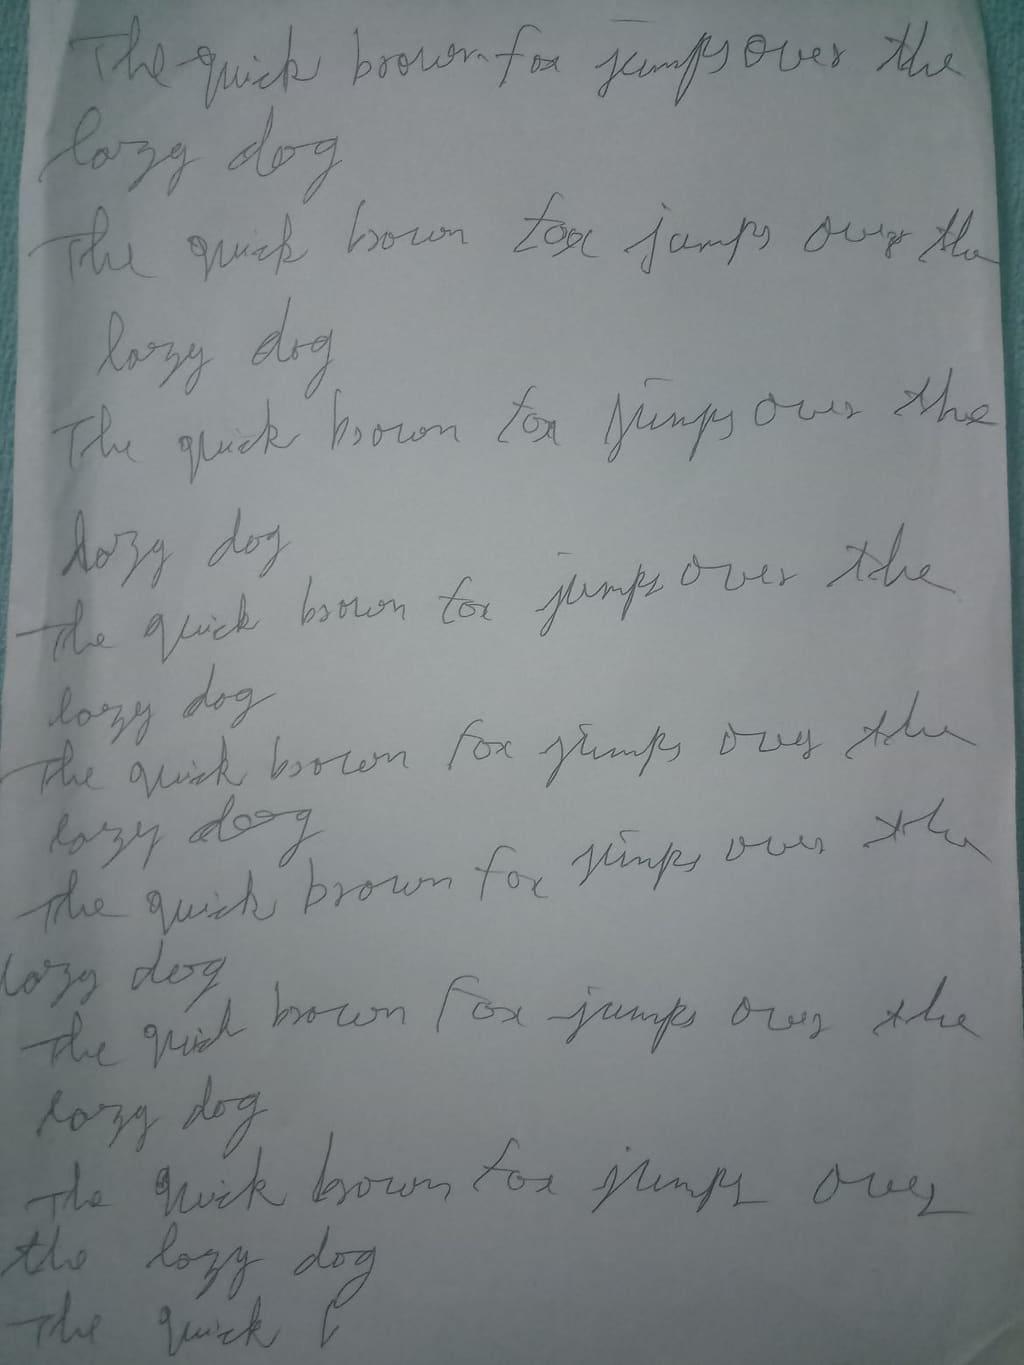 The quick brown fox jumps over the
lazy dog
The quick brown fox jumps over the
lazy dog
The quick brown fox jumps over the
lazy dog
The quick brown fox jumps over the
lazy dog
The quick brown fox jumps over the
lazy dog
The quick brown fox jumps over the
lazy dog
The quick brown fox jumps over the
lazy dog
The quick brown fox jumps over
the lazy dog
The quick